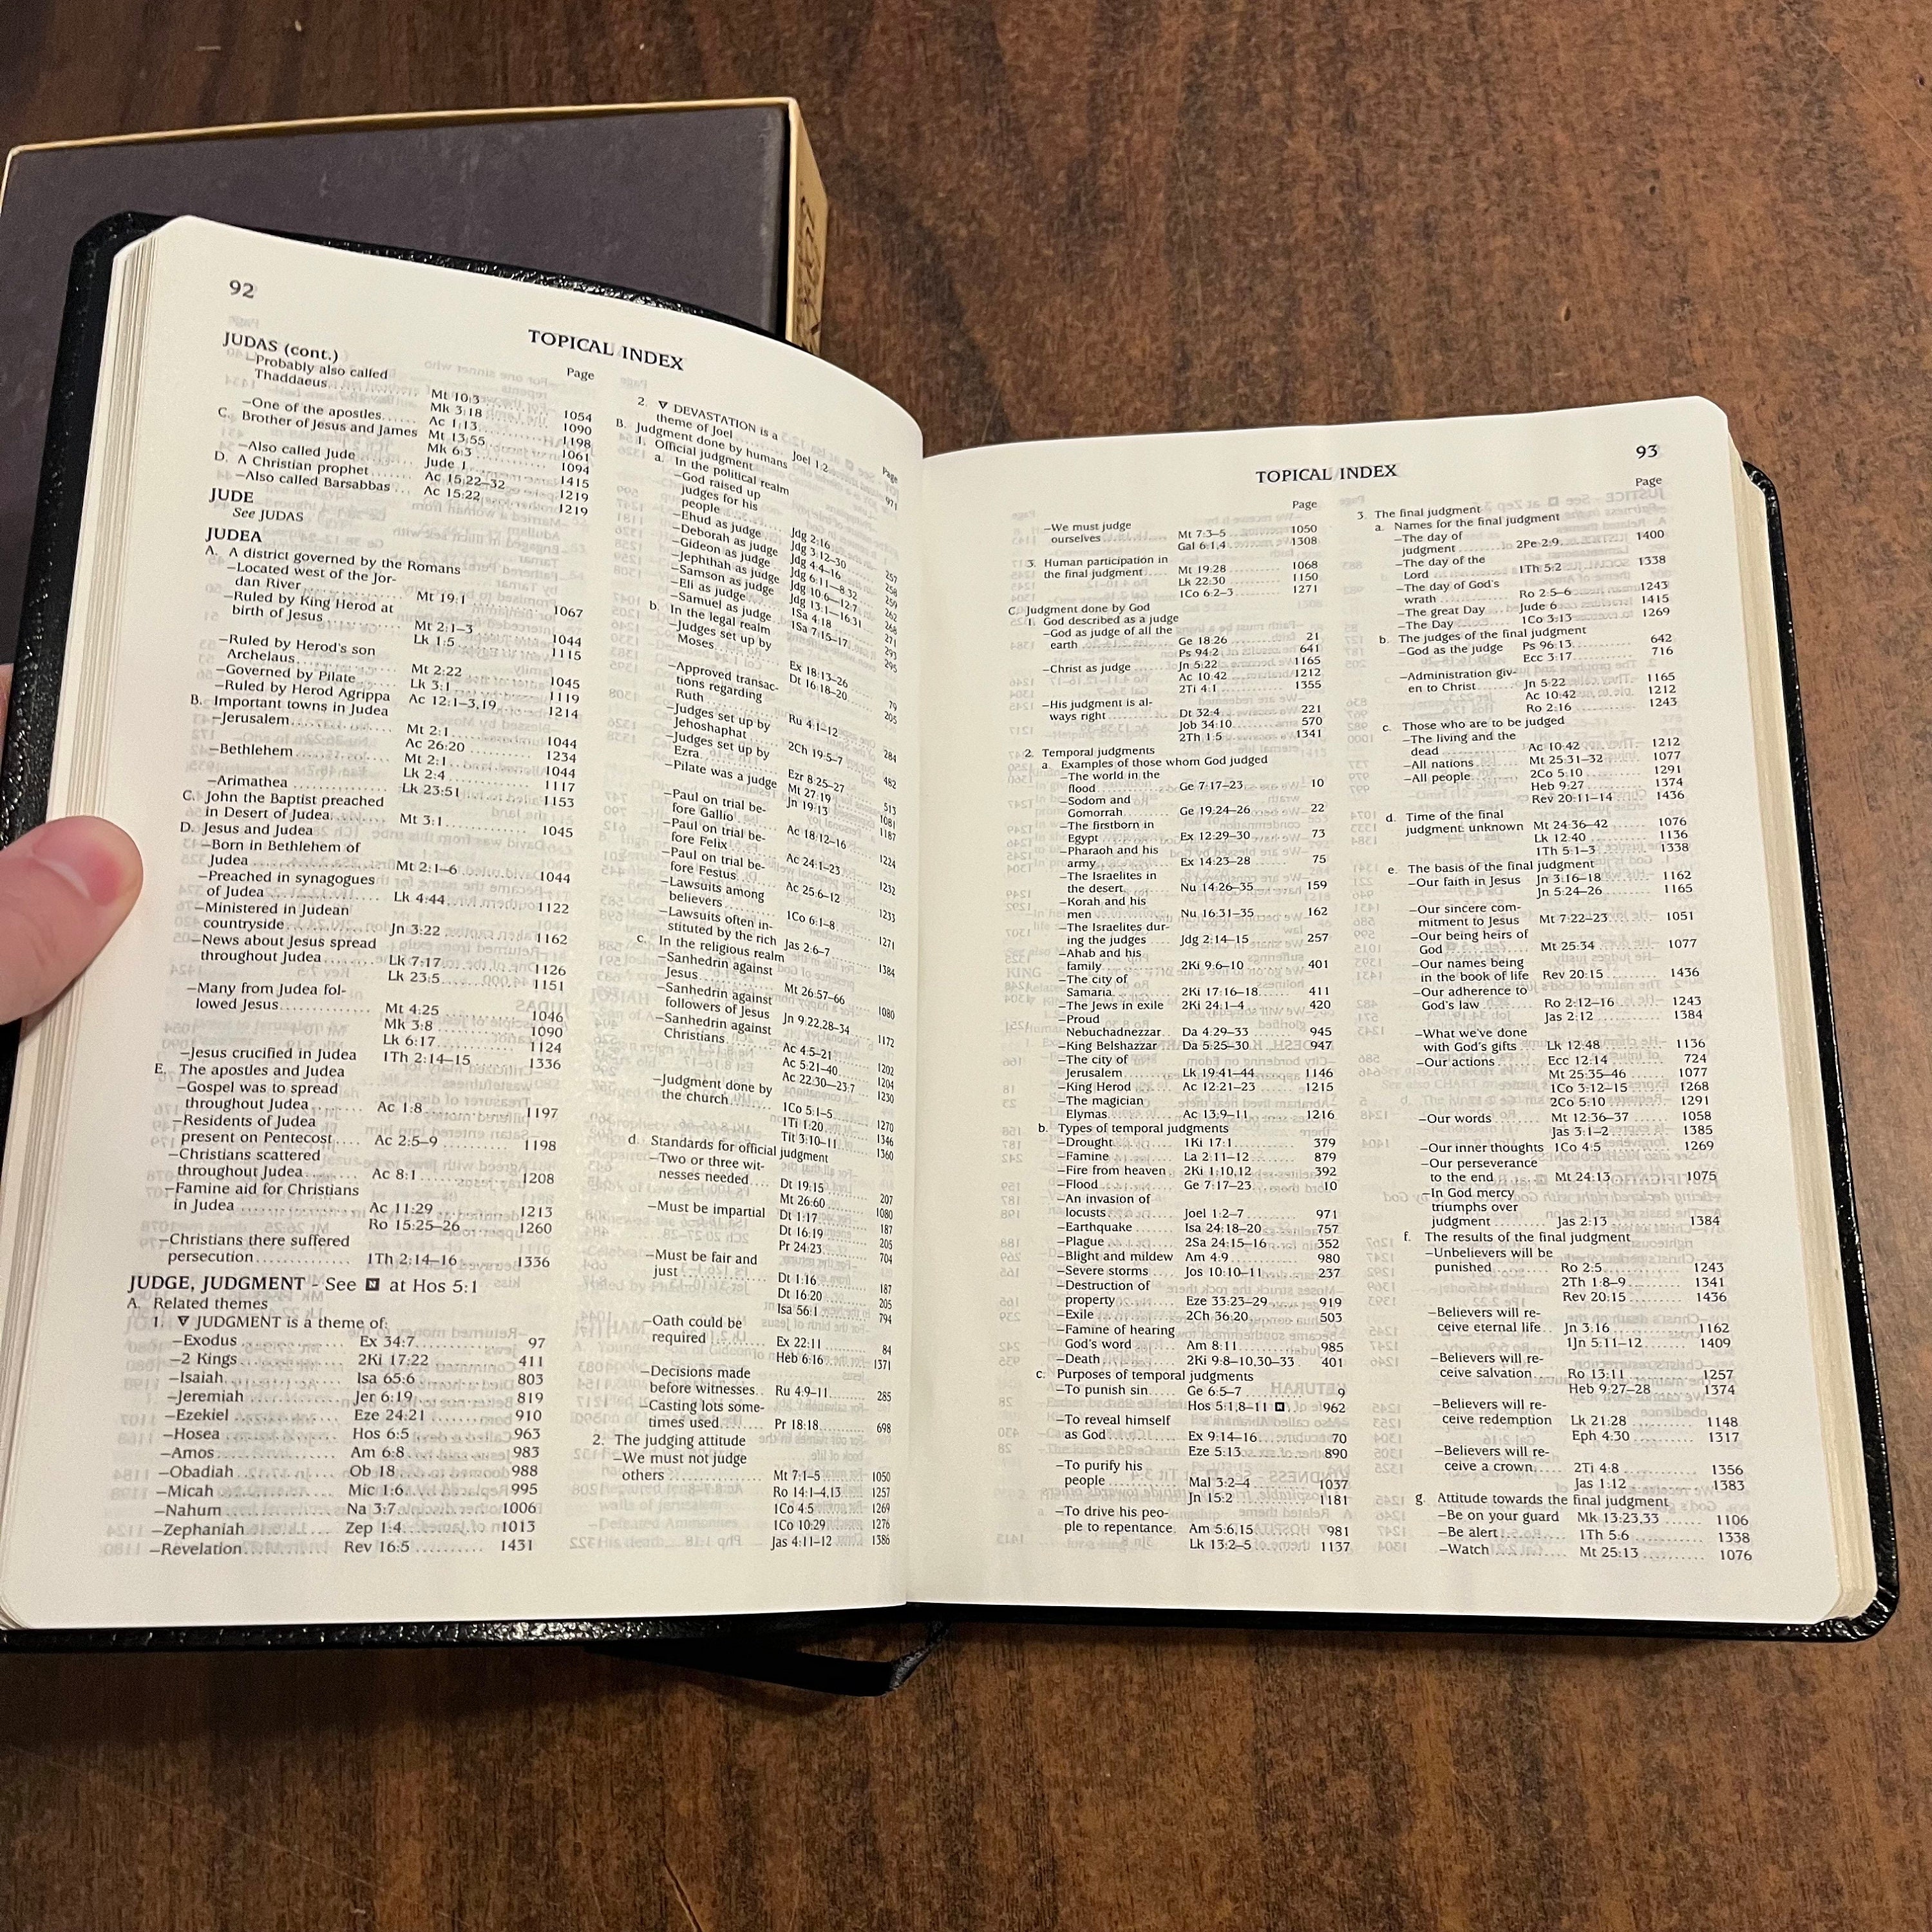 92
TOPICAL INDEX
Page
JUDAS (cont.)
–Probably also called
Thaddaeus..... Mt 10:3 ..... 1054
Mk 3:18 ..... 1090
–One of the apostles...... Ac 1:13 ..... 1198
C. Brother of Jesus and James Mt 13:55 ..... 1061
Mk 6:3 ..... 1094
–Also called Jude ..... Jude 1 ..... 1415
D. A Christian prophet..... Ac 15:22–32 ..... 1219
–Also called Barsabbas ... Ac 15:22 ..... 1219
JUDE
See JUDAS
JUDEA
A. A district governed by the Romans
–Located west of the Jor-
dan River ..... Mt 19:1 ..... 1067
–Ruled by King Herod at
birth of Jesus ..... Mt 2:1–3 ..... 1044
Lk 1:5 ..... 1115
–Ruled by Herod's son
Archelaus..... Mt 2:22 ..... 1045
–Governed by Pilate ..... Lk 3:1 ..... 1119
–Ruled by Herod Agrippa Ac 12:1–3,19 ..... 1214
B. Important towns in Judea
–Jerusalem..... Mt 2:1 ..... 1044
Ac 26:20 ..... 1234
–Bethlehem..... Mt 2:1 ..... 1044
Lk 2:4 ..... 1117
–Arimathea ..... Lk 23:51 ..... 1153
C. John the Baptist preached
in Desert of Judea..... Mt 3:1 ..... 1045
D. Jesus and Judea
–Born in Bethlehem of
Judea ..... Mt 2:1–6 ..... 1044
–Preached in synagogues
of Judea..... Lk 4:44 ..... 1122
–Ministered in Judean
countryside..... Jn 3:22 ..... 1162
–News about Jesus spread
throughout Judea..... Lk 7:17 ..... 1126
Lk 23:5 ..... 1151
–Many from Judea fol-
lowed Jesus..... Mt 4:25 ..... 1046
Mk 3:8 ..... 1090
Lk 6:17 ..... 1124
–Jesus crucified in Judea 1Th 2:14–15 ..... 1336
E. The apostles and Judea
–Gospel was to spread
throughout Judea ..... Ac 1:8 ..... 1197
–Residents of Judea
present on Pentecost.... Ac 2:5–9 ..... 1198
–Christians scattered
throughout Judea..... Ac 8:1 ..... 1208
–Famine aid for Christians
in Judea ..... Ac 11:29 ..... 1213
Ro 15:25–26 ..... 1260
–Christians there suffered
persecution..... 1Th 2:14–16 ..... 1336
JUDGE, JUDGMENT - See N at Hos 5:1
A. Related themes
1. ∇ JUDGMENT is a theme of:
–Exodus ..... Ex 34:7 ..... 97
–2 Kings ..... 2Ki 17:22 ..... 411
–Isaiah..... Isa 65:6 ..... 803
–Jeremiah ..... Jer 6:19 ..... 819
–Ezekiel ..... Eze 24:21 ..... 910
–Hosea ..... Hos 6:5 ..... 963
–Amos..... Am 6:8 ..... 983
–Obadiah ..... Ob 18 ..... 988
–Micah ..... Mic 1:6 ..... 995
–Nahum ..... Na 3:7 ..... 1006
–Zephaniah..... Zep 1:4 ..... 1013
–Revelation..... Rev 16:5 ..... 1431
Page
2. ∇ DEVASTATION is a
theme of Joel..... Joel 1:2 ..... 971
B. Judgment done by humans
1. Official judgment
a. In the political realm
–God raised up
judges for his
people ..... Jdg 2:16 ..... 257
–Ehud as judge Jdg 3:12–30 ..... 258
–Deborah as judge Jdg 4:4–16 ..... 259
–Gideon as judge Jdg 6:11–8:32 ..... 262
–Jephthah as judge Jdg 10:6–12:7 ..... 268
–Samson as judge Jdg 13:1–16:31 ..... 271
–Eli as judge ..... 1Sa 4:18 ..... 293
–Samuel as judge 1Sa 7:15–17 ..... 295
b. In the legal realm
–Judges set up by
Moses..... Ex 18:13–26 ..... 79
Dt 16:18–20 ..... 205
–Approved transac-
tions regarding
Ruth ..... Ru 4:1–12 ..... 284
–Judges set up by
Jehoshaphat .. 2Ch 19:5–7 ..... 482
–Judges set up by
Ezra..... Ezr 8:25–27 ..... 513
–Pilate was a judge Mt 27:19 ..... 1081
Jn 19:13 ..... 1187
–Paul on trial be-
fore Gallio..... Ac 18:12–16 ..... 1224
–Paul on trial be-
fore Felix..... Ac 24:1–23 ..... 1232
–Paul on trial be-
fore Festus..... Ac 25:6–12 ..... 1233
–Lawsuits among
believers..... 1Co 6:1–8 ..... 1271
–Lawsuits often in-
stituted by the rich Jas 2:6–7 ..... 1384
c. In the religious realm
–Sanhedrin against
Jesus..... Mt 26:57–66 ..... 1080
–Sanhedrin against
followers of Jesus Jn 9:22,28–34 ..... 1172
–Sanhedrin against
Christians..... Ac 4:5–21 ..... 1202
Ac 5:21–40 ..... 1204
Ac 22:30–23:7 1234
–Judgment done by
the church..... 1Co 5:1–5 ..... 1270
1Ti 1:20 ..... 1346
Tit 3:10–11 ..... 1360
d. Standards for official judgment
–Two or three wit-
nesses needed.... Dt 19:15 ..... 207
Mt 26:60 ..... 1080
–Must be impartial Dt 1:17 ..... 187
Dt 16:19 ..... 205
Pr 24:23 ..... 704
–Must be fair and
just..... Dt 1:16 ..... 187
Dt 16:20 ..... 205
Isa 56:1 ..... 794
–Oath could be
required ..... Ex 22:11 ..... 84
Heb 6:16 ..... 1371
–Decisions made
before witnesses.. Ru 4:9–11 ..... 285
–Casting lots some-
times used..... Pr 18:18 ..... 698
2. The judging attitude
–We must not judge
others ..... Mt 7:1–5 ..... 1050
Ro 14:1–4,13 1257
1Co 4:5 ..... 1269
1Co 10:29 ..... 1276
Jas 4:11–12 ..... 1386
TOPICAL INDEX
93
Page
–We must judge
ourselves ..... Mt 7:3–5 ..... 1050
Gal 6:1,4 ..... 1308
3. Human participation in
the final judgment..... Mt 19:28 ..... 1068
Lk 22:30 ..... 1150
1Co 6:2–3 ..... 1271
C. Judgment done by God
1. God described as a judge
–God as judge of all the
earth ..... Ge 18:26 ..... 21
Ps 94:2 ..... 641
–Christ as judge ..... Jn 5:22 ..... 1165
Ac 10:42 ..... 1212
2Ti 4:1 ..... 1355
–His judgment is al-
ways right ..... Dt 32:4 ..... 221
Job 34:10 ..... 570
2Th 1:5 ..... 1341
2. Temporal judgments
a. Examples of those whom God judged
–The world in the
flood ..... Ge 7:17–23 ..... 10
–Sodom and
Gomorrah..... Ge 19:24–26 ..... 22
–The firstborn in
Egypt ..... Ex 12:29–30 ..... 73
–Pharaoh and his
army..... Ex 14:23–28 ..... 75
–The Israelites in
the desert..... Nu 14:26–35 ..... 159
–Korah and his
men ..... Nu 16:31–35 ..... 162
–The Israelites dur-
ing the judges Jdg 2:14–15 ..... 257
–Ahab and his
family..... 2Ki 9:6–10 ..... 401
–The city of
Samaria..... 2Ki 17:16–18 ..... 411
–The Jews in exile 2Ki 24:1–4 ..... 420
–Proud
Nebuchadnezzar.. Da 4:29–33 ..... 945
–King Belshazzar Da 5:25–30 ..... 947
–The city of
Jerusalem ..... Lk 19:41–44 ..... 1146
–King Herod ..... Ac 12:21–23 ..... 1215
–The magician
Elymas..... Ac 13:9–11 ..... 1216
b. Types of temporal judgments
–Drought..... 1Ki 17:1 ..... 379
–Famine ..... La 2:11–12 ..... 879
–Fire from heaven 2Ki 1:10,12 ..... 392
–Flood ..... Ge 7:17–23 ..... 10
–An invasion of
locusts..... Joel 1:2–7 ..... 971
–Earthquake ..... Isa 24:18–20 ..... 757
–Plague ..... 2Sa 24:15–16 ..... 352
–Blight and mildew Am 4:9 ..... 980
–Severe storms ... Jos 10:10–11 ..... 237
–Destruction of
property ..... Eze 33:23–29 ..... 919
–Exile ..... 2Ch 36:20 ..... 503
–Famine of hearing
God's word ..... Am 8:11 ..... 985
–Death..... 2Ki 9:8–10,30–33 .. 401
c. Purposes of temporal judgments
–To punish sin..... Ge 6:5–7 ..... 9
Hos 5:1,8–11 N ... 962
–To reveal himself
as God ..... Ex 9:14–16 ..... 70
Eze 5:13 ..... 890
–To purify his
people ..... Mal 3:2–4 ..... 1037
Jn 15:2 ..... 1181
–To drive his peo-
ple to repentance Am 5:6,15 ..... 981
Lk 13:2–5 ..... 1137
Page
3. The final judgment
a. Names for the final judgment
–The day of
judgment ..... 2Pe 2:9 ..... 1400
–The day of the
Lord ..... 1Th 5:2 ..... 1338
–The day of God's
wrath ..... Ro 2:5–6 ..... 1243
–The great Day ... Jude 6 ..... 1415
–The Day ..... 1Co 3:13 ..... 1269
b. The judges of the final judgment
–God as the judge Ps 96:13 ..... 642
Ecc 3:17 ..... 716
–Administration giv-
en to Christ ..... Jn 5:22 ..... 1165
Ac 10:42 ..... 1212
Ro 2:16 ..... 1243
c. Those who are to be judged
–The living and the
dead ..... Ac 10:42 ..... 1212
–All nations ..... Mt 25:31–32 ..... 1077
–All people ..... 2Co 5:10 ..... 1291
Heb 9:27 ..... 1374
Rev 20:11–14 ..... 1436
d. Time of the final
judgment: unknown Mt 24:36–42 ..... 1076
Lk 12:40 ..... 1136
1Th 5:1–3 ..... 1338
e. The basis of the final judgment
–Our faith in Jesus Jn 3:16–18 ..... 1162
Jn 5:24–26 ..... 1165
–Our sincere com-
mitment to Jesus Mt 7:22–23 ..... 1051
–Our being heirs of
God ..... Mt 25:34 ..... 1077
–Our names being
in the book of life Rev 20:15 ..... 1436
–Our adherence to
God's law ..... Ro 2:12–16 ..... 1243
Jas 2:12 ..... 1384
–What we've done
with God's gifts .. Lk 12:48 ..... 1136
–Our actions ..... Ecc 12:14 ..... 724
Mt 25:35–46 ..... 1077
1Co 3:12–15 ..... 1268
2Co 5:10 ..... 1291
–Our words ..... Mt 12:36–37 ..... 1058
Jas 3:1–2 ..... 1385
–Our inner thoughts 1Co 4:5 ..... 1269
–Our perseverance
to the end ..... Mt 24:13 ..... 1075
–In God mercy
triumphs over
judgment ..... Jas 2:13 ..... 1384
f. The results of the final judgment
–Unbelievers will be
punished ..... Ro 2:5 ..... 1243
2Th 1:8–9 ..... 1341
Rev 20:15 ..... 1436
–Believers will re-
ceive eternal life.. Jn 3:16 ..... 1162
1Jn 5:11–12 ..... 1409
–Believers will re-
ceive salvation.... Ro 13:11 ..... 1257
Heb 9:27–28 ..... 1374
–Believers will re-
ceive redemption Lk 21:28 ..... 1148
Eph 4:30 ..... 1317
–Believers will re-
ceive a crown..... 2Ti 4:8 ..... 1356
Jas 1:12 ..... 1383
g. Attitude towards the final judgment
–Be on your guard Mk 13:23,33 ..... 1106
–Be alert..... 1Th 5:6 ..... 1338
–Watch ..... Mt 25:13 ..... 1076